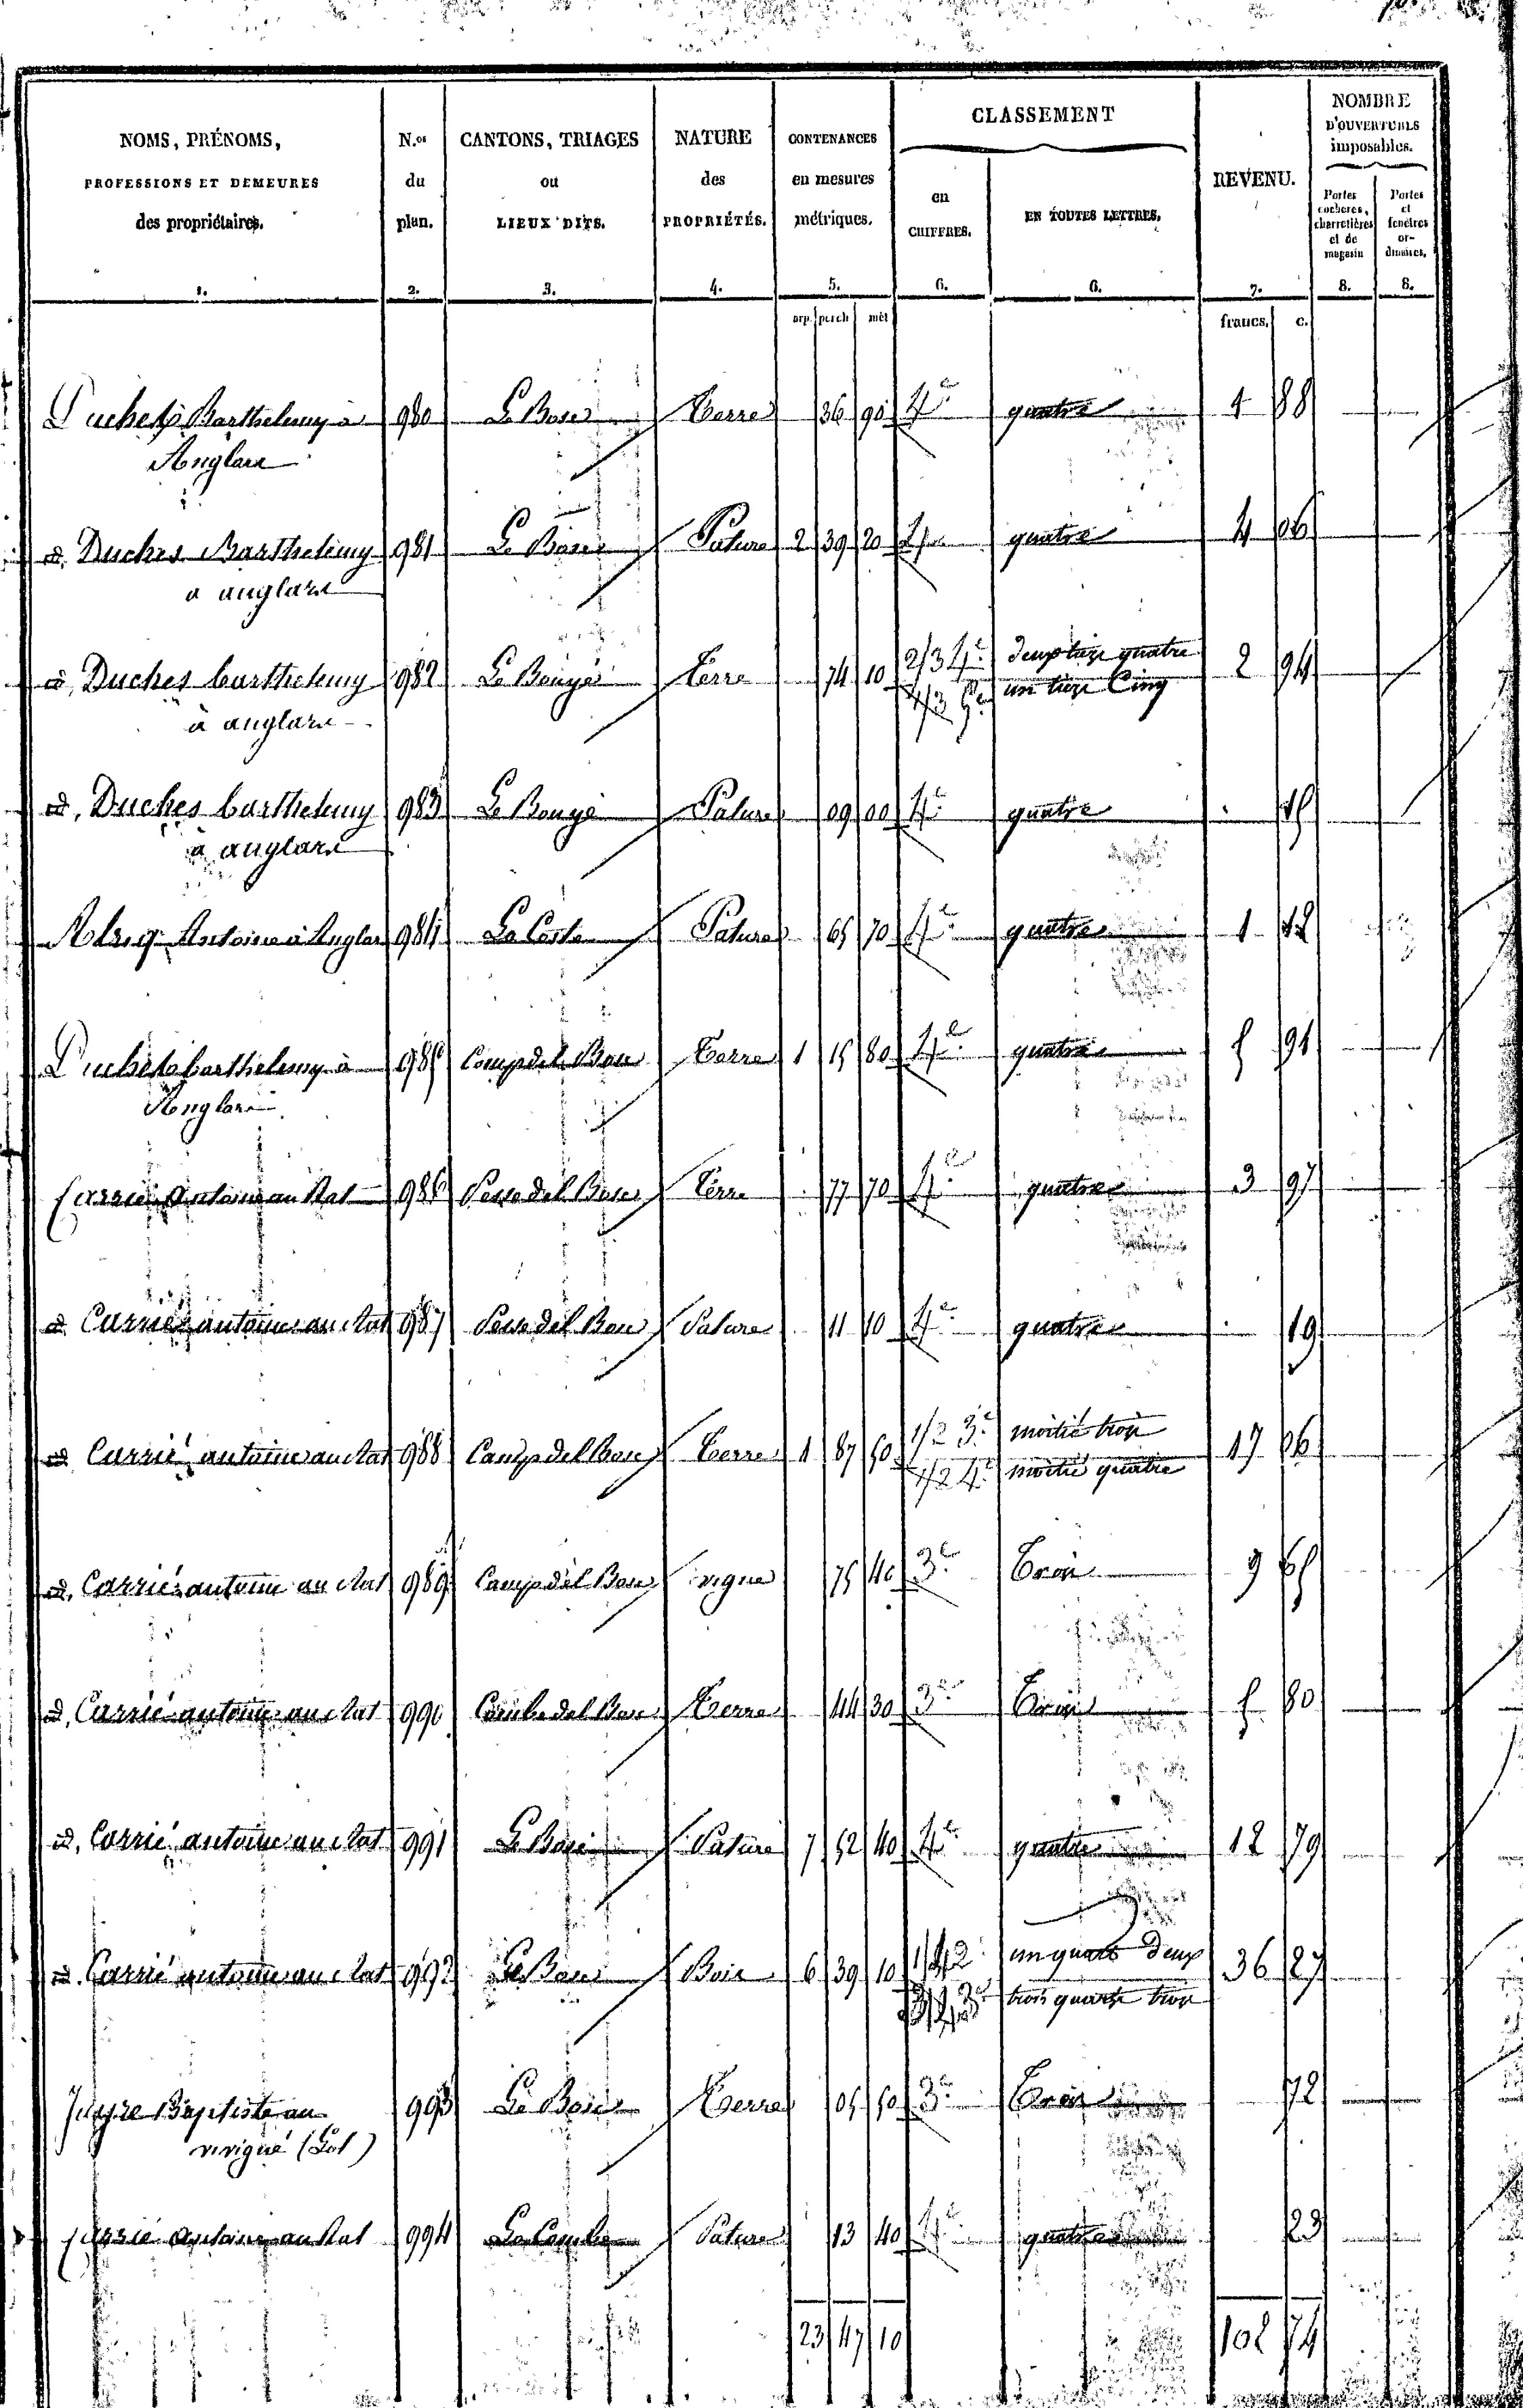 NOMS, PRÉNOMS, PROFESSIONS ET DEMEURES des propriétaires. 1.
N.os du plan. 2.
CANTONS, TRIAGES ou LIEUX DITS. 3.
NATURE des PROPRIÉTÉS. 4.
CONTENANCES en mesures métriques. 5.
CLASSEMENT
en CHIFFRES. 6.
EN TOUTES LETTRES. 6.
REVENU. 7.
NOMBRE D'OUVERTURES imposables.
Portes cochères, charretières et de magasin 8.
Portes et fenêtres ordinaires. 8.
arp. perch mèt francs. c.
Barthelemy à 980 Le Bosc Terre 36 90 4e quatre 1 88
Anglars
id. Duches Barthelemy 981 Le Bosc Pature 2 39 20 4e quatre 4 06
a anglars
id. Duches barthelemy 982 Le Bougé Terre 74 10 2/3 4e deux tiers quatre 2 94
à anglars 1/3 5e un tiers Cinq
id. Duches barthelemy 983 Le Bougé Pature 09 00 4e quatre 15
a anglars
Antoine à Anglars 984 La Coste Pature 65 70 4e quatre 1 12
barthelemy à 985 Camp del Bosc Terre 1 15 80 4e quatre 5 91
Anglars
Carrié Antoine au Rat 986 del Bosc Terre 77 70 4e quatre 3 97
id. Carrié antoine au Rat 987 del Bosc Pature 11 10 4e quatre 19
id. Carrié antoine au Rat 988 Camp del Bosc Terre 1 87 50 1/2 3e moitié trois 17 06
1/2 4e moitié quatre
id. Carrié antoine au Rat 989 Camp del Bosc vigne 75 40 3e Trois 9 65
id. Carrié antoine au Rat 990 Combe del Bosc Terre 44 30 3e Trois 5 80
id. Carrié antoine au Rat 991 Le Bosc Pature 7 52 40 4e quatre 12 79
id. Carrié antoine au Rat 992 Le Bosc Bois 6 39 10 1/4 2e un quart deux 36 27
3/4 3e trois quarts trois
Baptiste au 993 Le Bosc Terre 05 50 3e Trois 72
(Lot)
Carrié Antoine au Rat 994 La Combe Pature 13 40 4e quatre 23
23 47 10 102 74